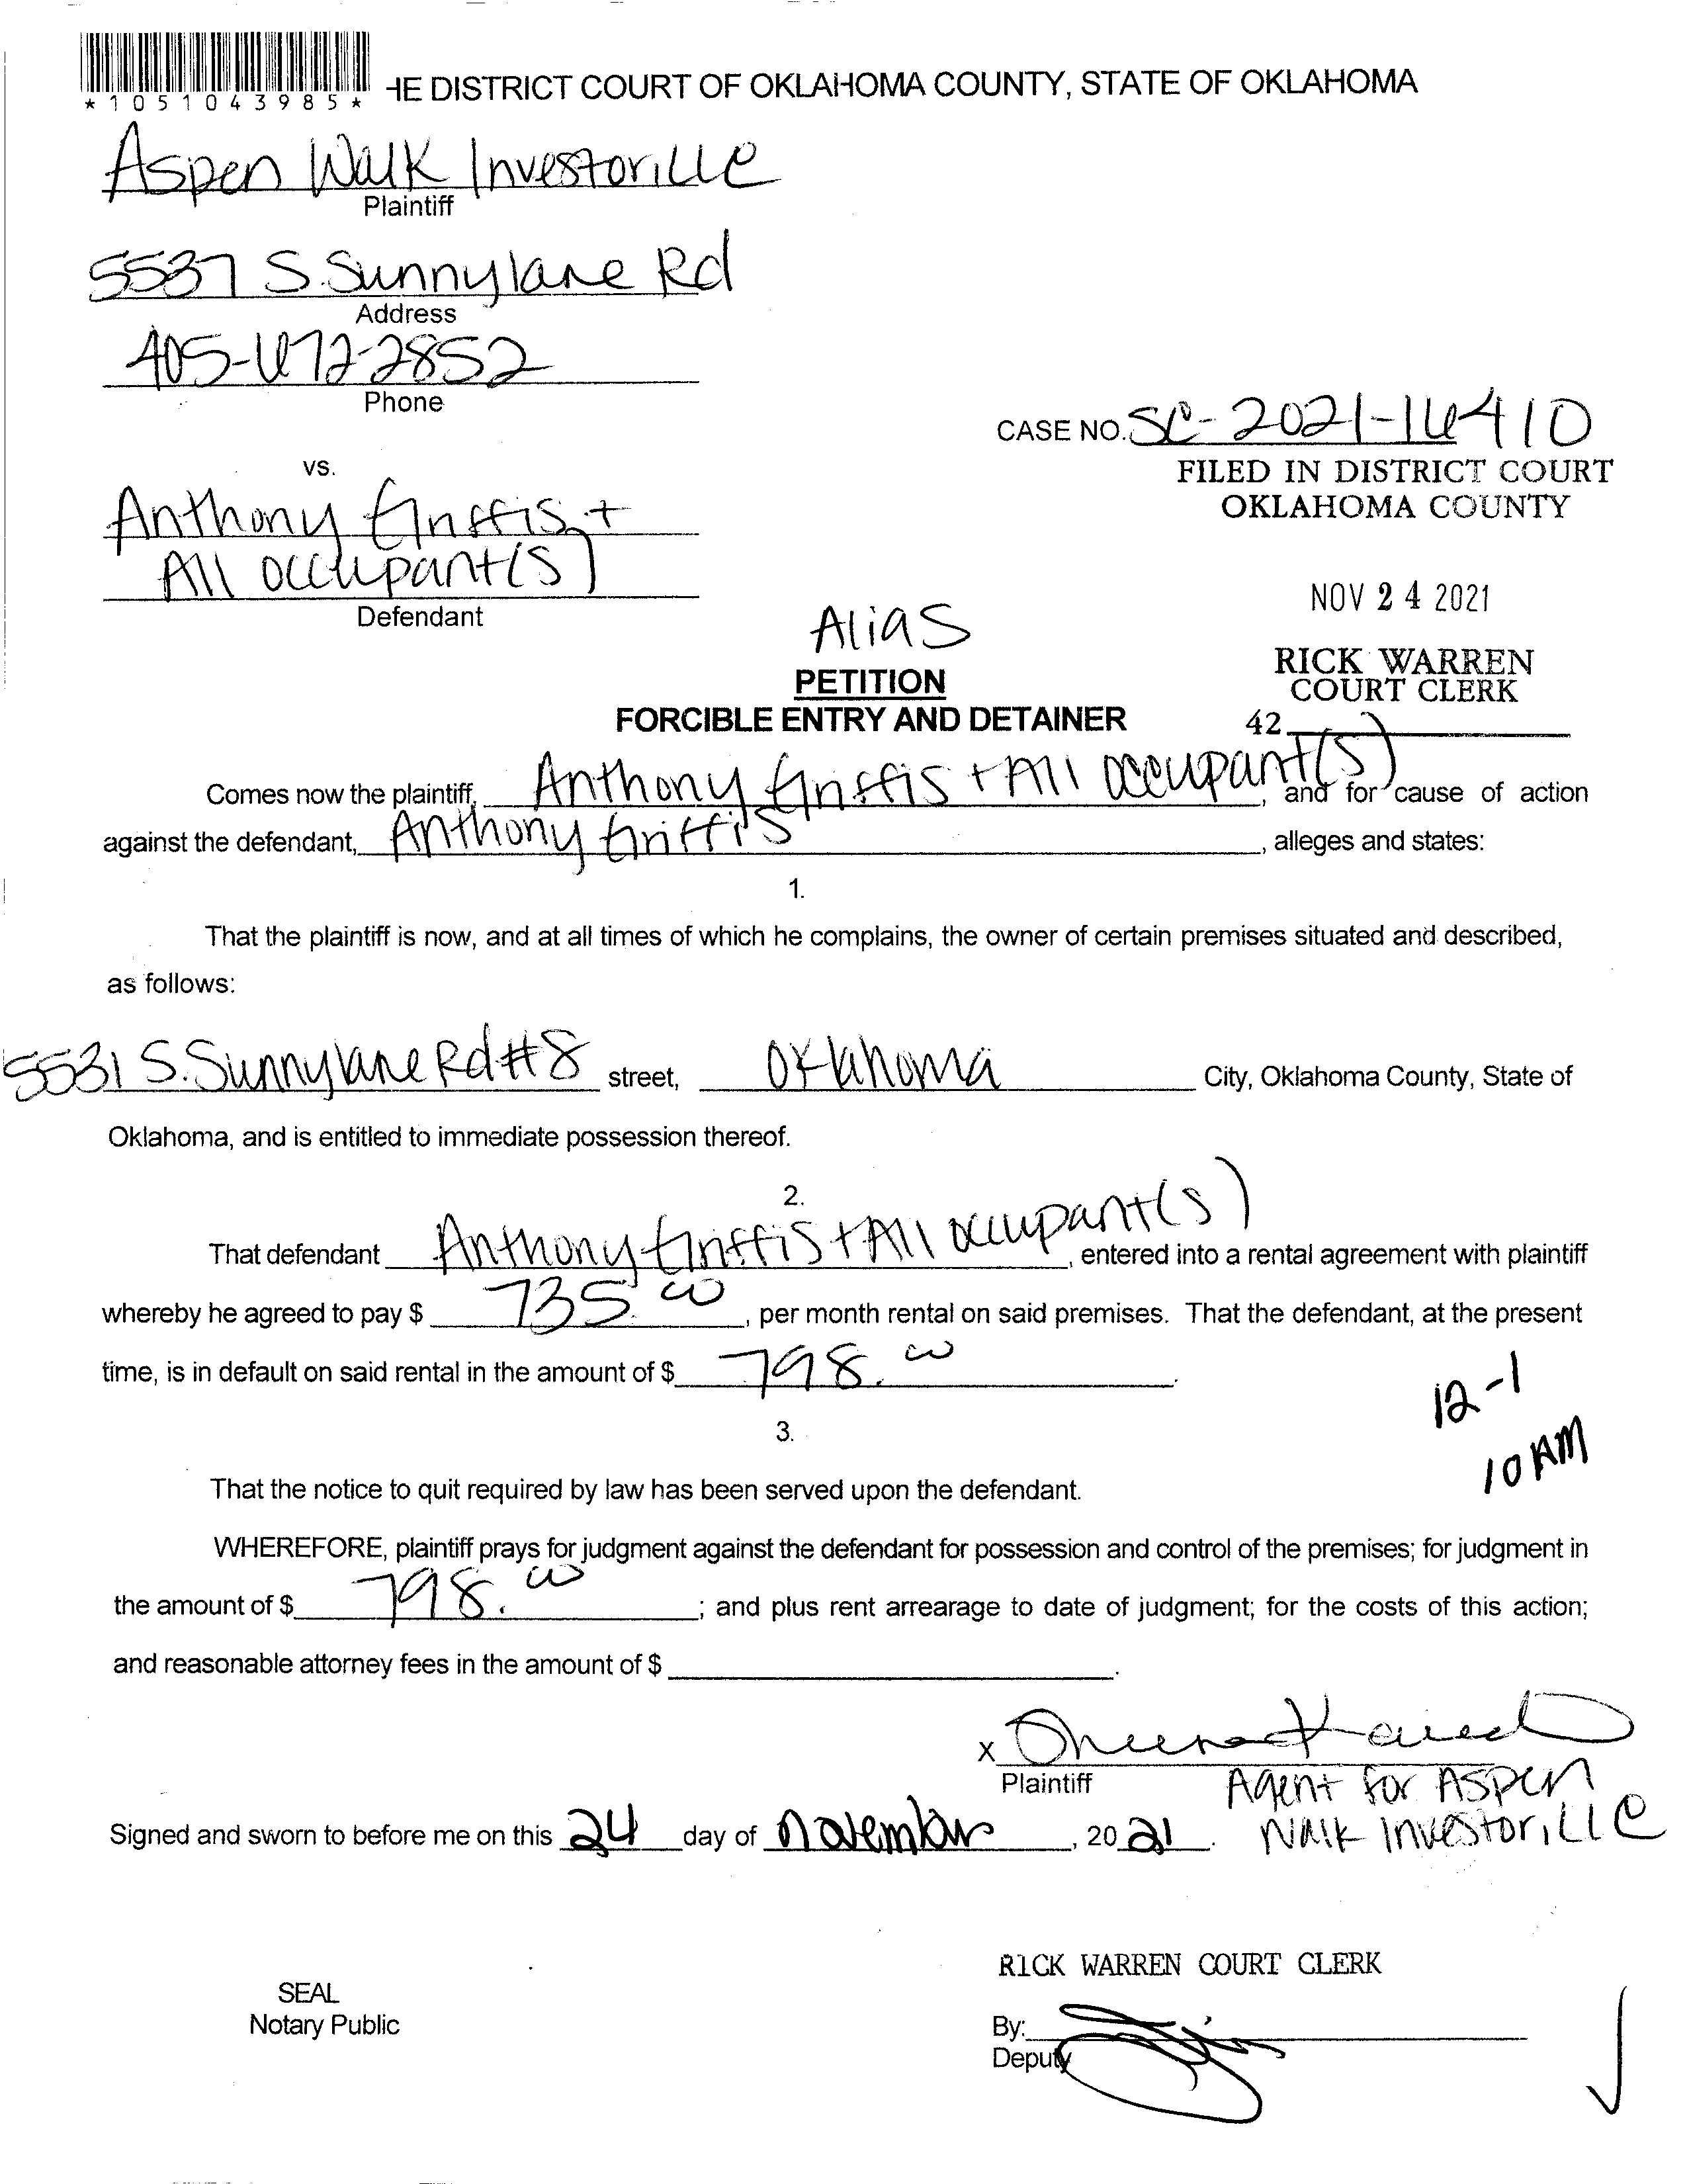 *1051043985*
HE DISTRICT COURT OF OKLAHOMA COUNTY, STATE OF OKLAHOMA
Aspen Walk Investor, LLC
Plaintiff
5537 S. Sunnylane Rd
Address
405-672-2852
Phone
CASE NO. SC-2021-16410
FILED IN DISTRICT COURT
OKLAHOMA COUNTY
vs.
Anthony Griffis +
All occupant(s)
Defendant
NOV 24 2021
Alias
RICK WARREN
COURT CLERK
PETITION
FORCIBLE ENTRY AND DETAINER
42
Comes now the plaintiff, Anthony Griffis + All occupant(s), and for cause of action
against the defendant, Anthony Griffis, alleges and states:
1.
That the plaintiff is now, and at all times of which he complains, the owner of certain premises situated and described,
as follows:
5531 S. Sunnylane Rd #8 street, Oklahoma City, Oklahoma County, State of
Oklahoma, and is entitled to immediate possession thereof.
2.
That defendant Anthony Griffis + All occupant(s), entered into a rental agreement with plaintiff
whereby he agreed to pay $ 735.00, per month rental on said premises. That the defendant, at the present
time, is in default on said rental in the amount of $ 798.00.
12-1
10 AM
3.
That the notice to quit required by law has been served upon the defendant.
WHEREFORE, plaintiff prays for judgment against the defendant for possession and control of the premises; for judgment in
the amount of $ 798.00; and plus rent arrearage to date of judgment; for the costs of this action;
and reasonable attorney fees in the amount of $ .
X
Plaintiff
Agent for Aspen
Walk Investor, LLC
Signed and sworn to before me on this 24 day of November, 20 21.
RICK WARREN COURT CLERK
SEAL
Notary Public
By:
Deputy